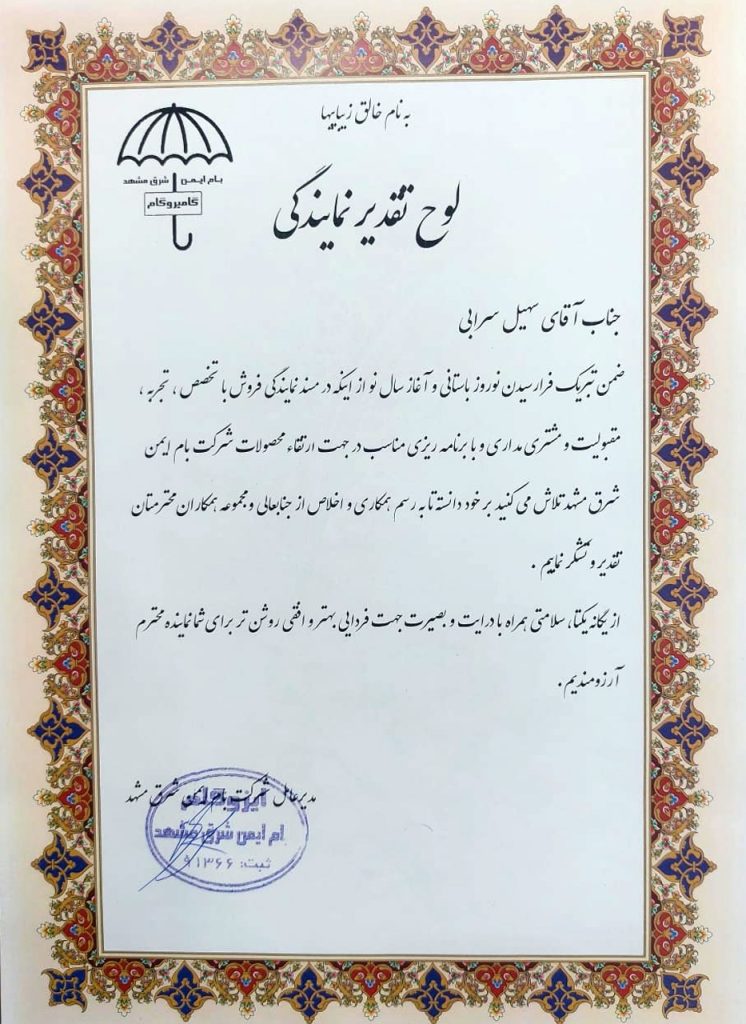 به نام خالق زیباییها
بام ایمن شرق مشهد
گامیروگام
لوح تقدیر نمایندگی
جناب آقای سهیل سرابی
ضمن تبریک فرارسیدن نوروز باستانی و آغاز سال نو از اینکه در مسند نمایندگی فروش با تخصص ، تجربه ،
مقبولیت و مشتری مداری و با برنامه ریزی مناسب در جهت ارتقاء محصولات شرکت بام ایمن
شرق مشهد تلاش می کنید بر خود دانسته تا به رسم همکاری و اخلاص از جنابعالی و مجموعه همکاران محترمتان
تقدیر و تشکر نماییم .
از یگانه یکتا، سلامتی همراه با درایت و بصیرت جهت فردایی بهتر و افقی روشن تر برای شما نماینده محترم
آرزومندیم .
مدیرعامل شرکت بام ایمن شرق مشهد
ام ایمن شرق مشهد
ثبت: ۹۱۳۶۶